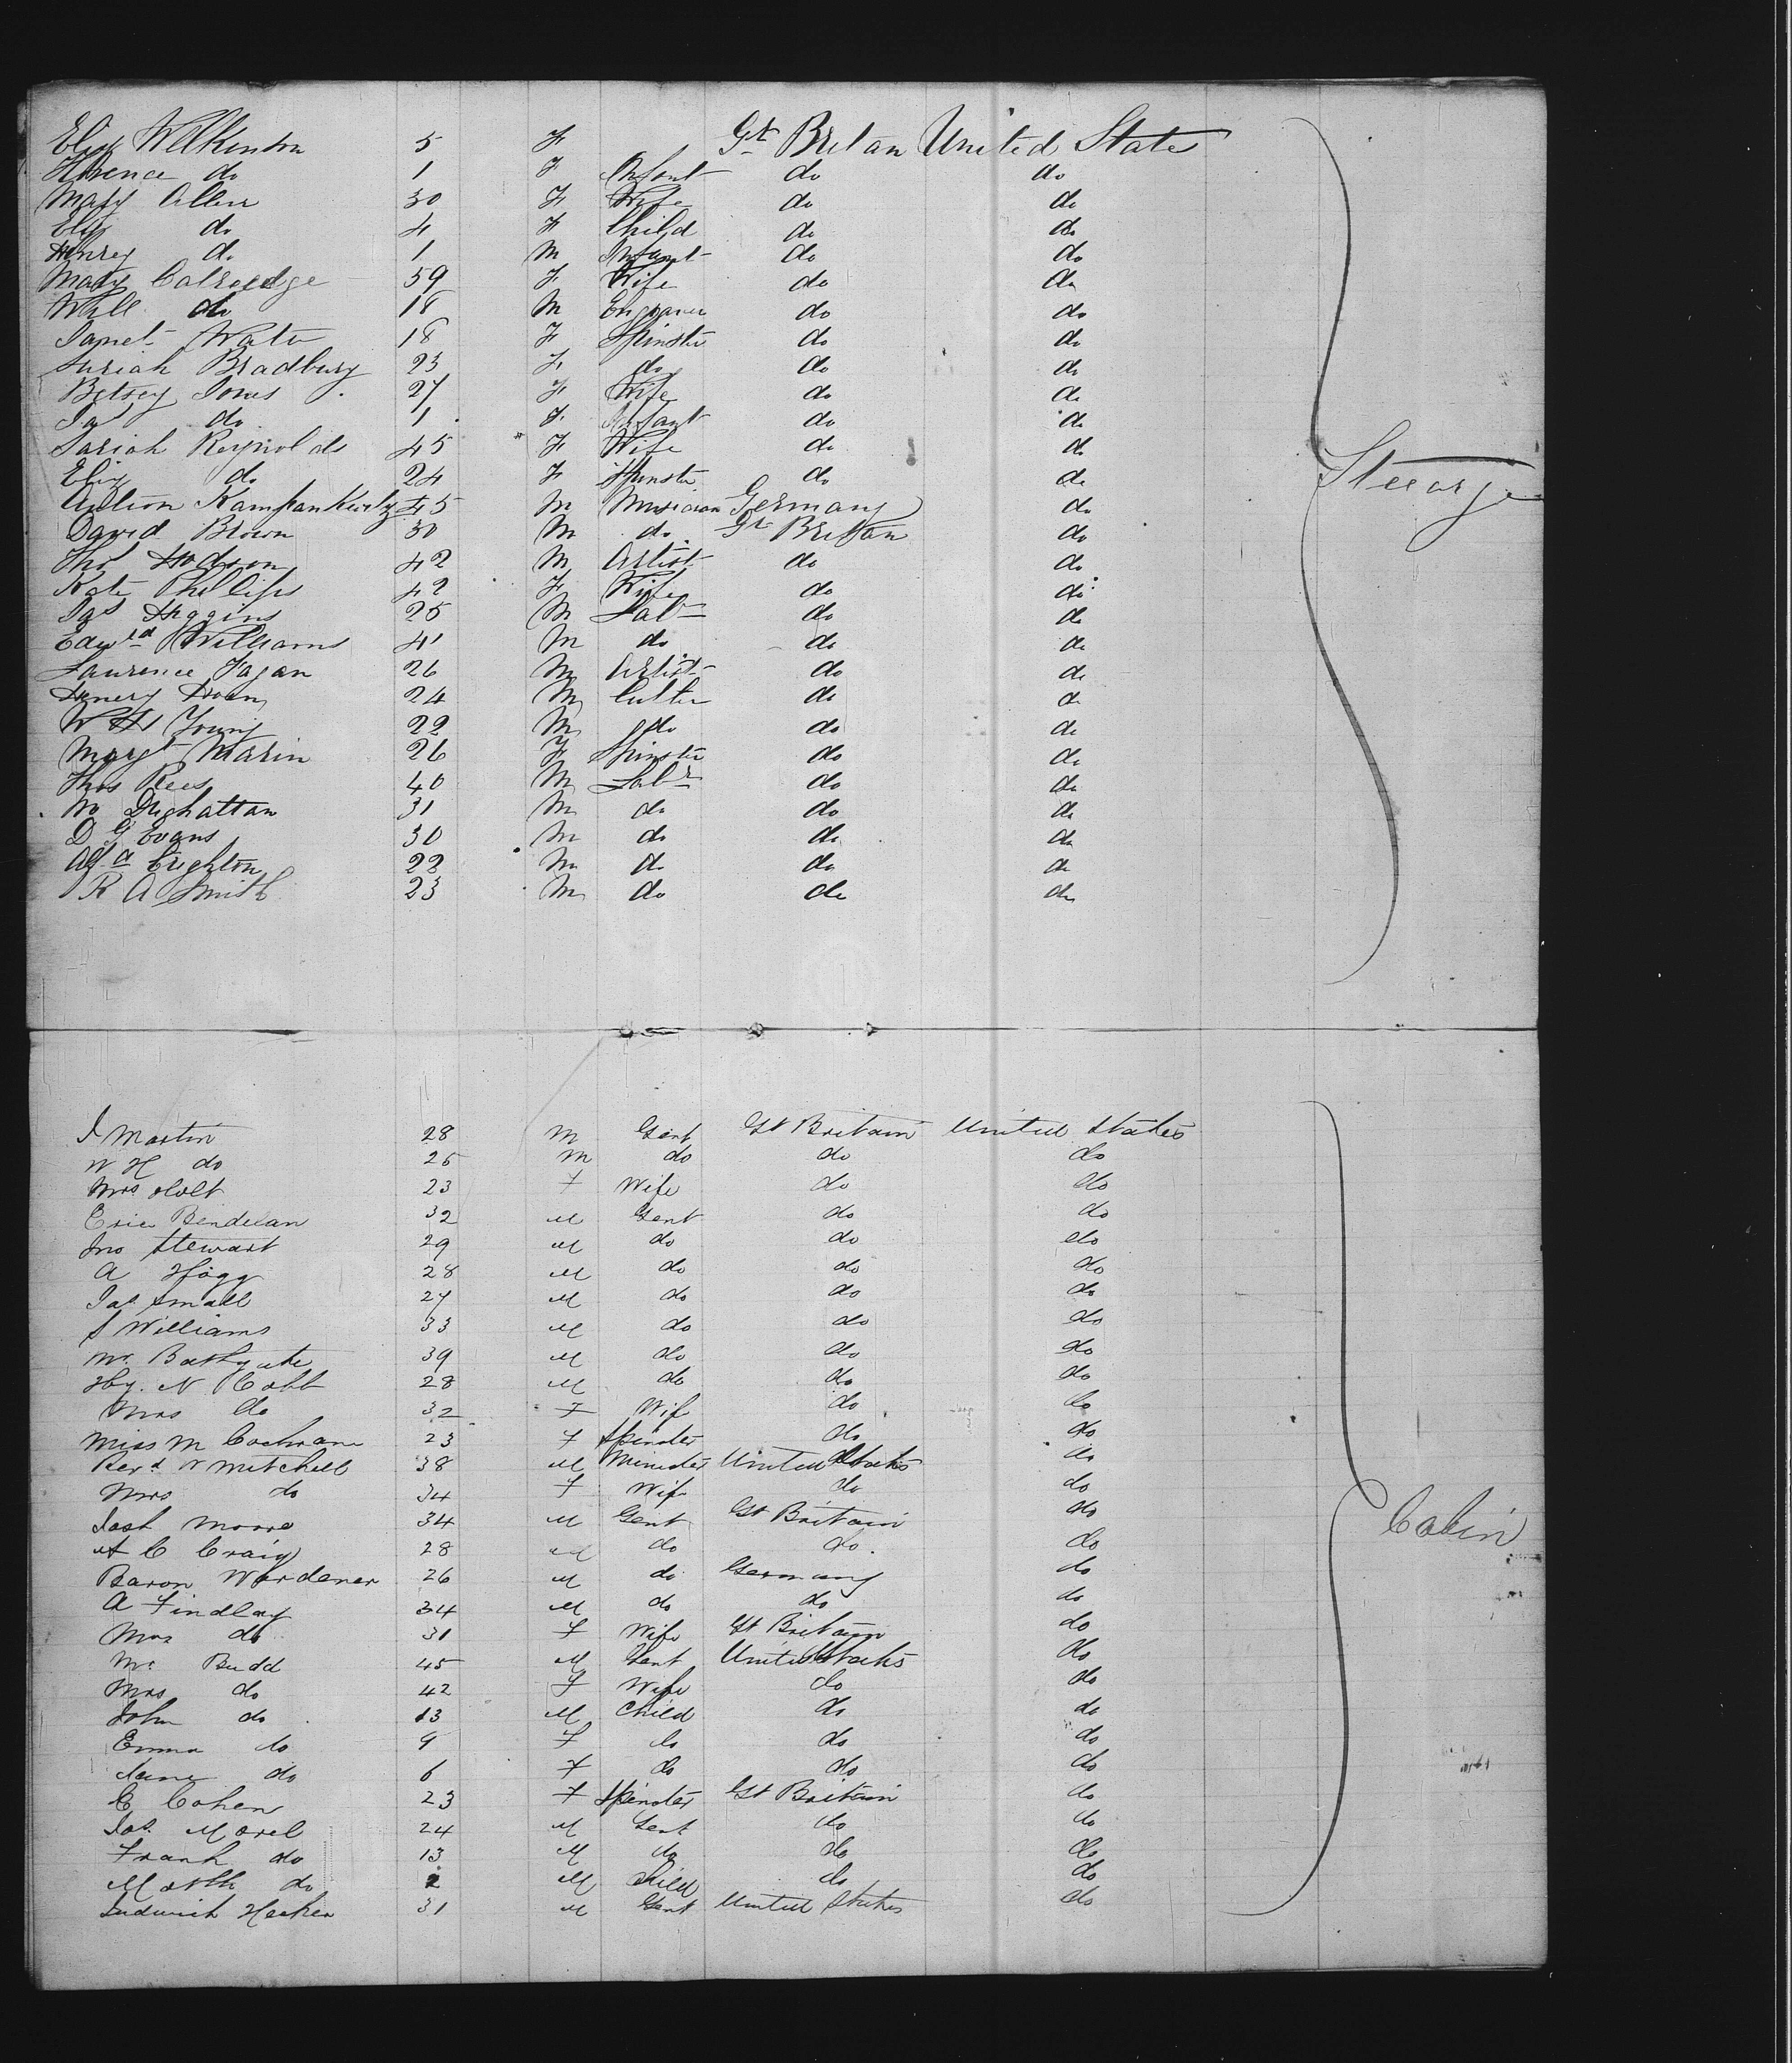 Eliz Wilkinson 5 F Gt Britan United States
Florence do 1 F Infant do do
Mary Allen 30 F Wife do do
Eliz do 4 F Child do do
Henry do 1 M Infant do do
Mary 59 F Wife do do
Will do 18 M Engraver do do
Janet 18 F Spinster do do
Suriah Bradbury 23 F do do do
Betsey Jones 27 F Wife do do
Jas do 1 F Infant do do
Sariah Reynolds 45 F Wife do do
Eliz do 24 F Spinster do do
45 M Musician Germany do
David Brown 30 M do Gt Britan do
Thos Hodson 42 M Artist do do
Kate Phillips 42 F Wife do do
Jas Higgins 25 M Labr do do
Edwd Williams 41 M do do do
Laurence Fagan 26 M Artist do do
Henery 24 M Cutler do do
W H Young 22 M do do do
Margt Marin 26 F Spinster do do
Thos Rees 40 M Labr do do
Wm 31 M do do do
D G Evans 30 M do do do
22 M do do do
R A Smith 23 M do do do
Steearge
J Martin 28 M Gent Gt Britain United States
W H do 25 M do do do
Mrs Holt 23 F Wife do do
Eric 32 M Gent do do
Jno Stewart 29 M do do do
A Hogg 28 M do do do
Jas Small 27 M do do do
S Williams 33 M do do do
Mr Bathgate 39 M do do do
Hy. N Cobb 28 M do do do
Mrs do 32 F Wife do do
Miss M Cochrane 23 F Spinster do do
Revd W Mitchell 38 M Minister United States do
Mrs do 34 F Wife do do
Josh Moore 34 M Gent Gt Britain do
A C Craig 28 M do do do
Baron Wardener 26 M do Germany do
A Findlay 34 M do do do
Mrs do 31 F Wife Gt Britain do
Mr Budd 45 M Gent United States do
Mrs do 42 F Wife do do
John do 13 M Child do do
Emma do 9 F do do do
Jane do 6 F do do do
C Cohen 23 F Spinster Gt Britain do
Jos Morel 24 M Gent do do
Frank do 13 M do do do
do 2 M Child do do
Ludwich Hecker 31 M Gent United States do
Cabin